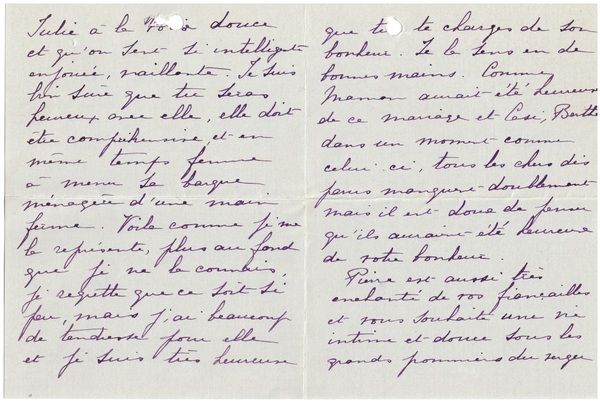 Julie à la voix douce
et qu'on sent si intelligente
enjouée, vaillante. Je suis
bien sûre que tu seras
heureux avec elle, elle doit
être compréhensive et en
même temps femme
à mener sa barque
ménagère d'une main
ferme. Voila comme je me
la représente, plus au fond
que je ne la connais,
je regrette que ce soit si
peu, mais j'ai beaucoup
de tendresse pour elle
et je suis très heureuse
que te charges de son
bonheur. Je la sens en de
bonnes mains. Comme
Maman aurait été heureuse
de ce mariage et Casi, Berthe
dans un moment comme
celui-ci, tous les chers dis
parus manquent doublement
mais il est doux de penser
qu'ils auraient été heureux
de votre bonheur.
Pierre est aussi très
enchanté de vos fiançailles
et vous souhaite une vie
intime et douce sous les
grands pommiers du verger